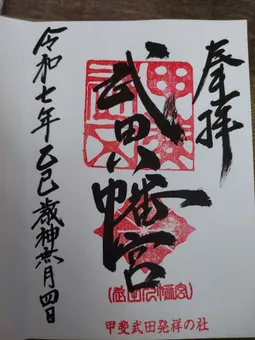 奉拝
武田八幡宮
令和七年乙巳歳神無月四日
(武田八幡宮)
甲斐武田発祥の社